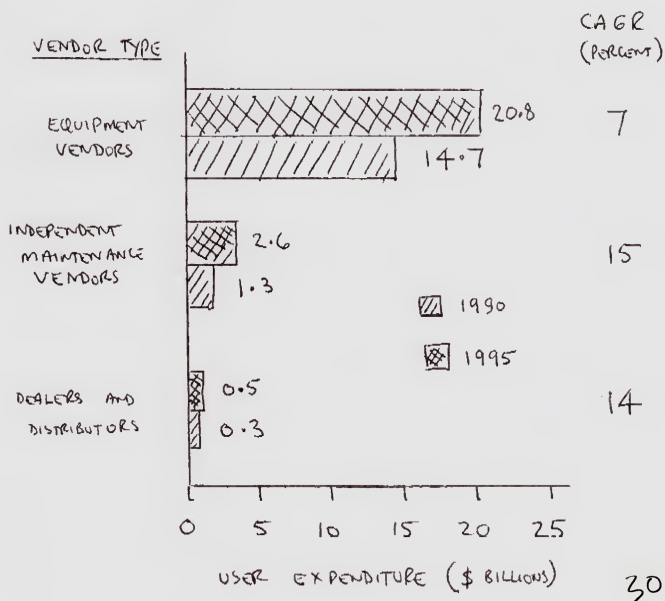 CAGR
(PERCENT)
VENDOR TYPE
EQUIPMENT
VENDORS
20.8
14.7
7
INDEPENDENT
MAINTENANCE
VENDORS
2.6
1.3
15
1990
1995
DEALERS AND
DISTRIBUTORS
0.5
0.3
14
0 5 10 15 20 25
USER EXPENDITURE ($ BILLIONS)
30